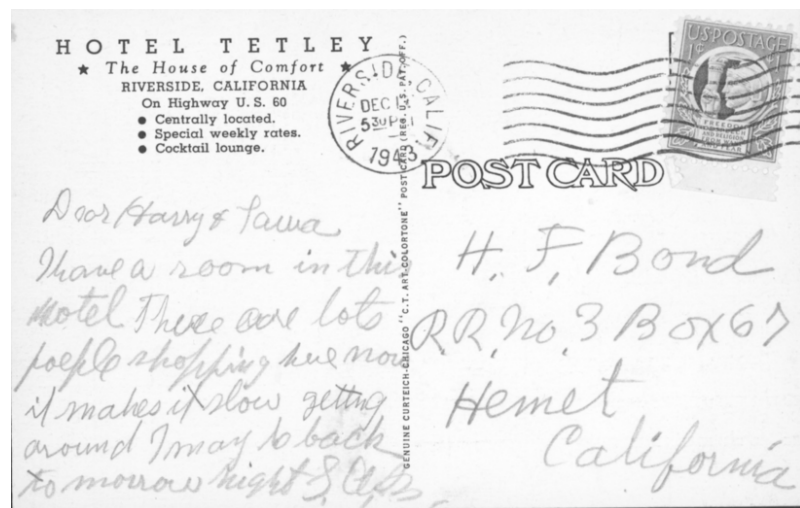 HOTEL TETLEY
★ The House of Comfort ★
RIVERSIDE, CALIFORNIA
On Highway U. S. 60
● Centrally located.
● Special weekly rates.
● Cocktail lounge.
RIVERSIDE, CALIF.
DEC
530 PM
1943
US POSTAGE
1¢
FREEDOM
POST CARD
GENUINE CURTEICH-CHICAGO "C.T. ART-COLORTONE" POST CARD (REG. U.S. PAT. OFF.)
Dear Harry &
I have a room in this
Hotel There are lots
poeple shopping here now
it makes it slow getting
around I may b back
to morrow night
H. F. Bond
R.R. No. 3 Box 67
Hemet
California